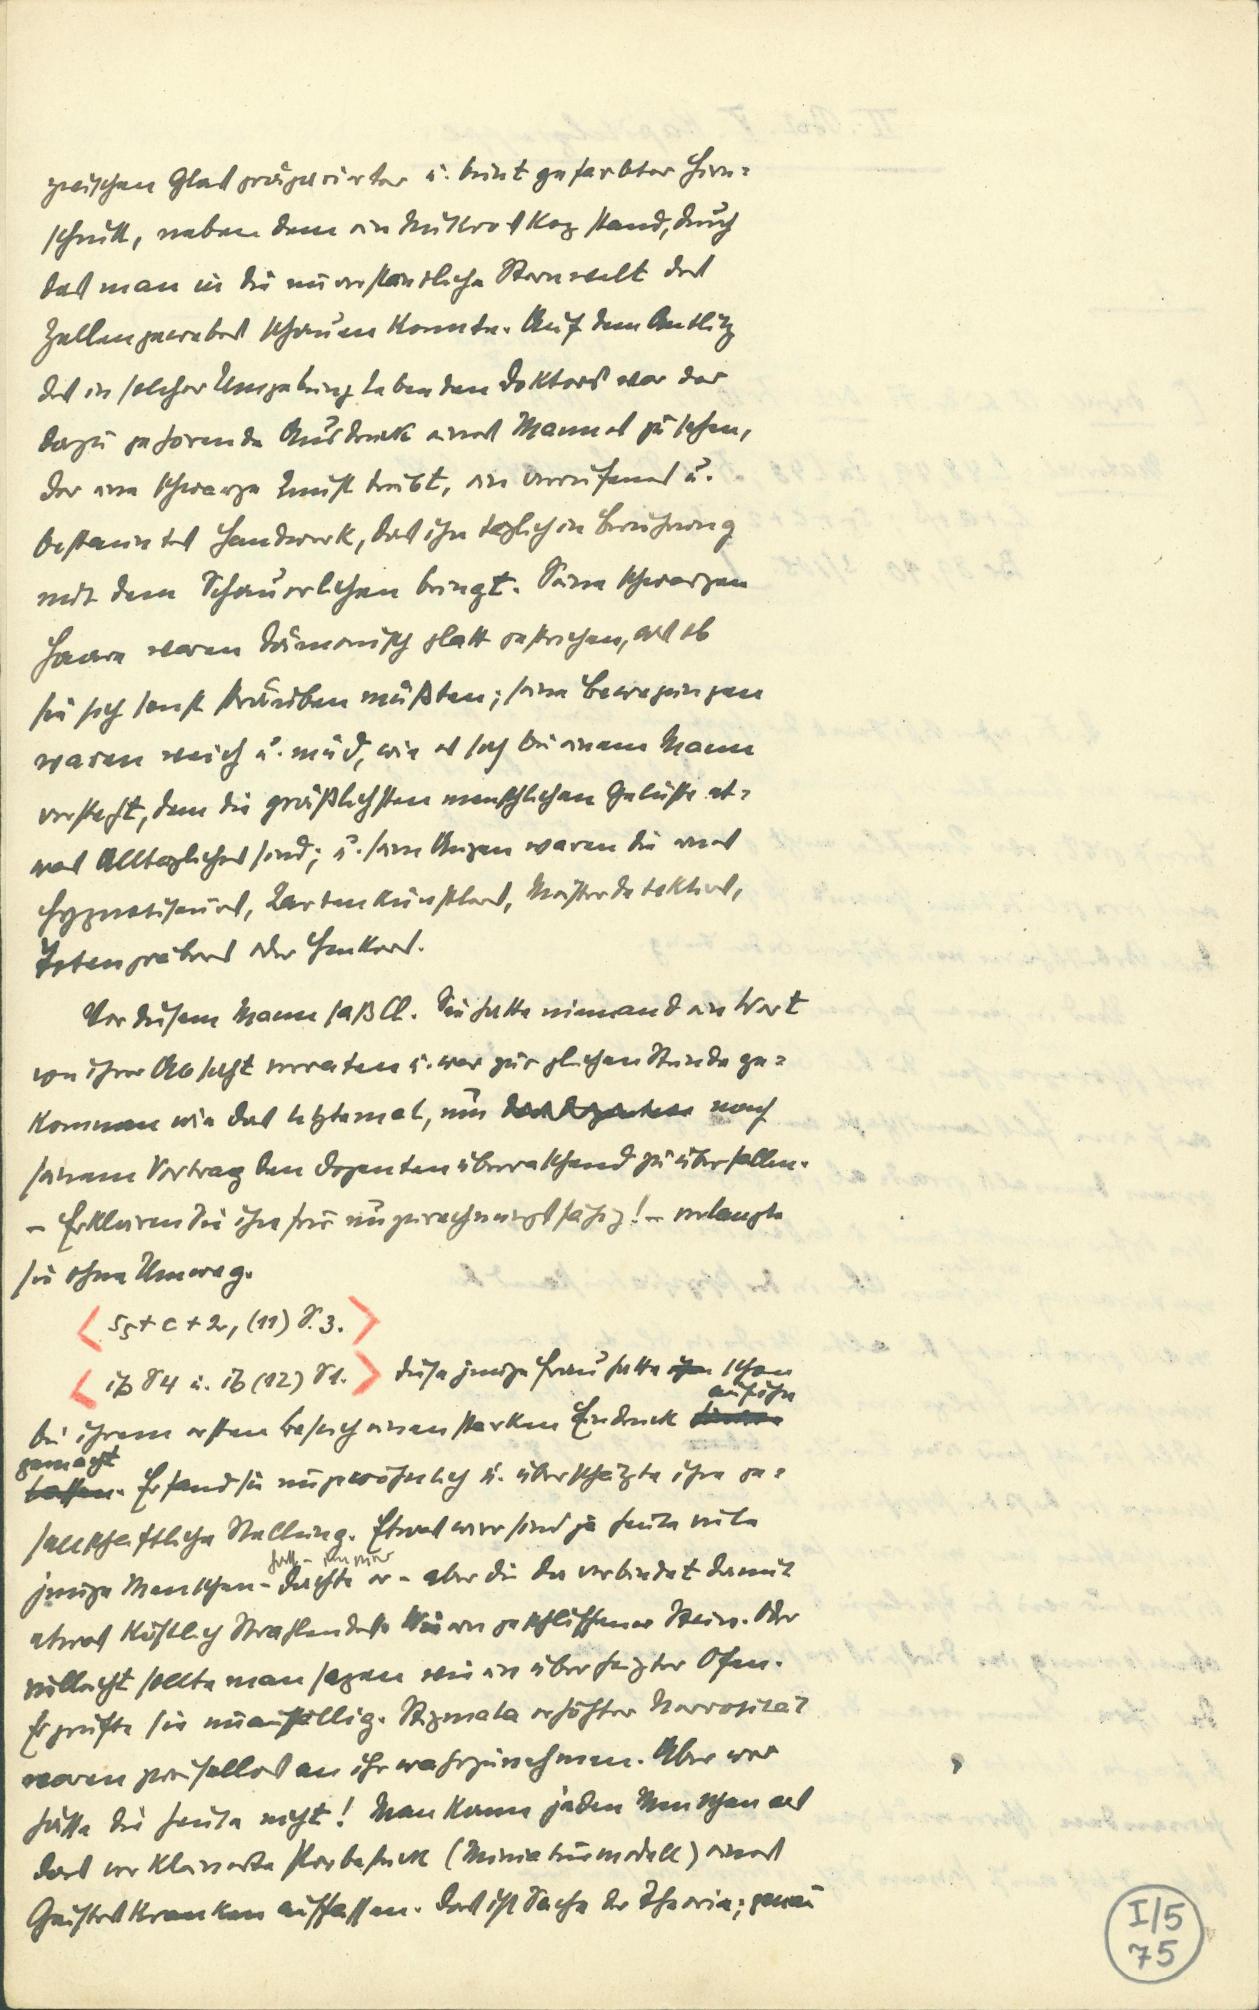 zwischen Glas präparierter u. bunt gefärbter Hirn-
schnitt, neben dem ein Mikroskop stand, durch
das man in die unverständliche Sternwelt des
Zellengewebes schauen konnte. Auf dem Antlitz
des in solcher Umgebung lebenden Doktors war der
dazu gehörende Ausdruck eines Mannes zu sehen,
der eine schwarze Kunst treibt, ein verrufenes u.
bestauntes Handwerk, das ihn täglich in Berührung
mit dem Schauerlichen bringt. Seine schwarzen
Haare waren dämonisch glatt gestrichen, als ob
sie sich sonst sträuben müßten; seine Bewegungen
waren weich u. müd, wie es sich bei einem Mann
versteht, dem die gräßlichsten menschlichen Gelüste et-
was Alltägliches sind; u. seine Augen waren die eines
Hypnotiseurs, Kartenkünstlers, Meisterdetektivs,
Totengräbers oder Henkers.
Vor diesem Mann saß Cl. Sie hatte niemand ein Wort
von ihrer Absicht verraten u. war zur gleichen Stunde ge-
kommen wie das letztemal, um nach
seinem Vortrag den Dozenten überraschend zu überfallen.
– Erklären Sie ihn für unzurechnungsfähig! – verlangte
sie ohne Umweg.
< s5 + c + 2, (11) S. 3. >
< ib S4 u. ib (12) S1. > Diese junge Frau hatte schon
auf ihn
bei ihrem ersten Besuch einen starken Eindruck
gemacht
Er fand sie ungewöhnlich u. überschätzte ihre ge-
sellschaftliche Stellung. Etwas wirr sind ja heute viele
junge Menschen – dachte er – aber die da verbindet damit
etwas köstlich Strahlendes. Wie ein geschliffener Stein. Oder
vielleicht sollte man sagen wie ein überheizter Ofen.
Er prüfte sie unauffällig. Stigmata erhöhter Nervosität
waren zweifellos an ihr wahrzunehmen. Aber wer
hätte die heute nicht! Man kann jeden Menschen als
das verkleinerte Probestück (Miniaturmodell) eines
Geisteskranken auffassen. Das ist Sache der Theorie; genau
I/5
75